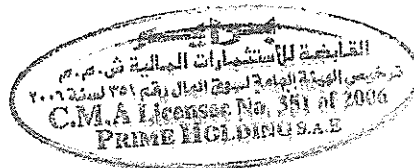 برايم
القابضة للإستثمارات المالية ش.م.م
ترخيص الهيئة العامة لسوق المال رقم ٣٥١ لسنة ٢٠٠٦
C.M.A Licensee No, 351 of 2006
PRIME HOLDING S.A.E